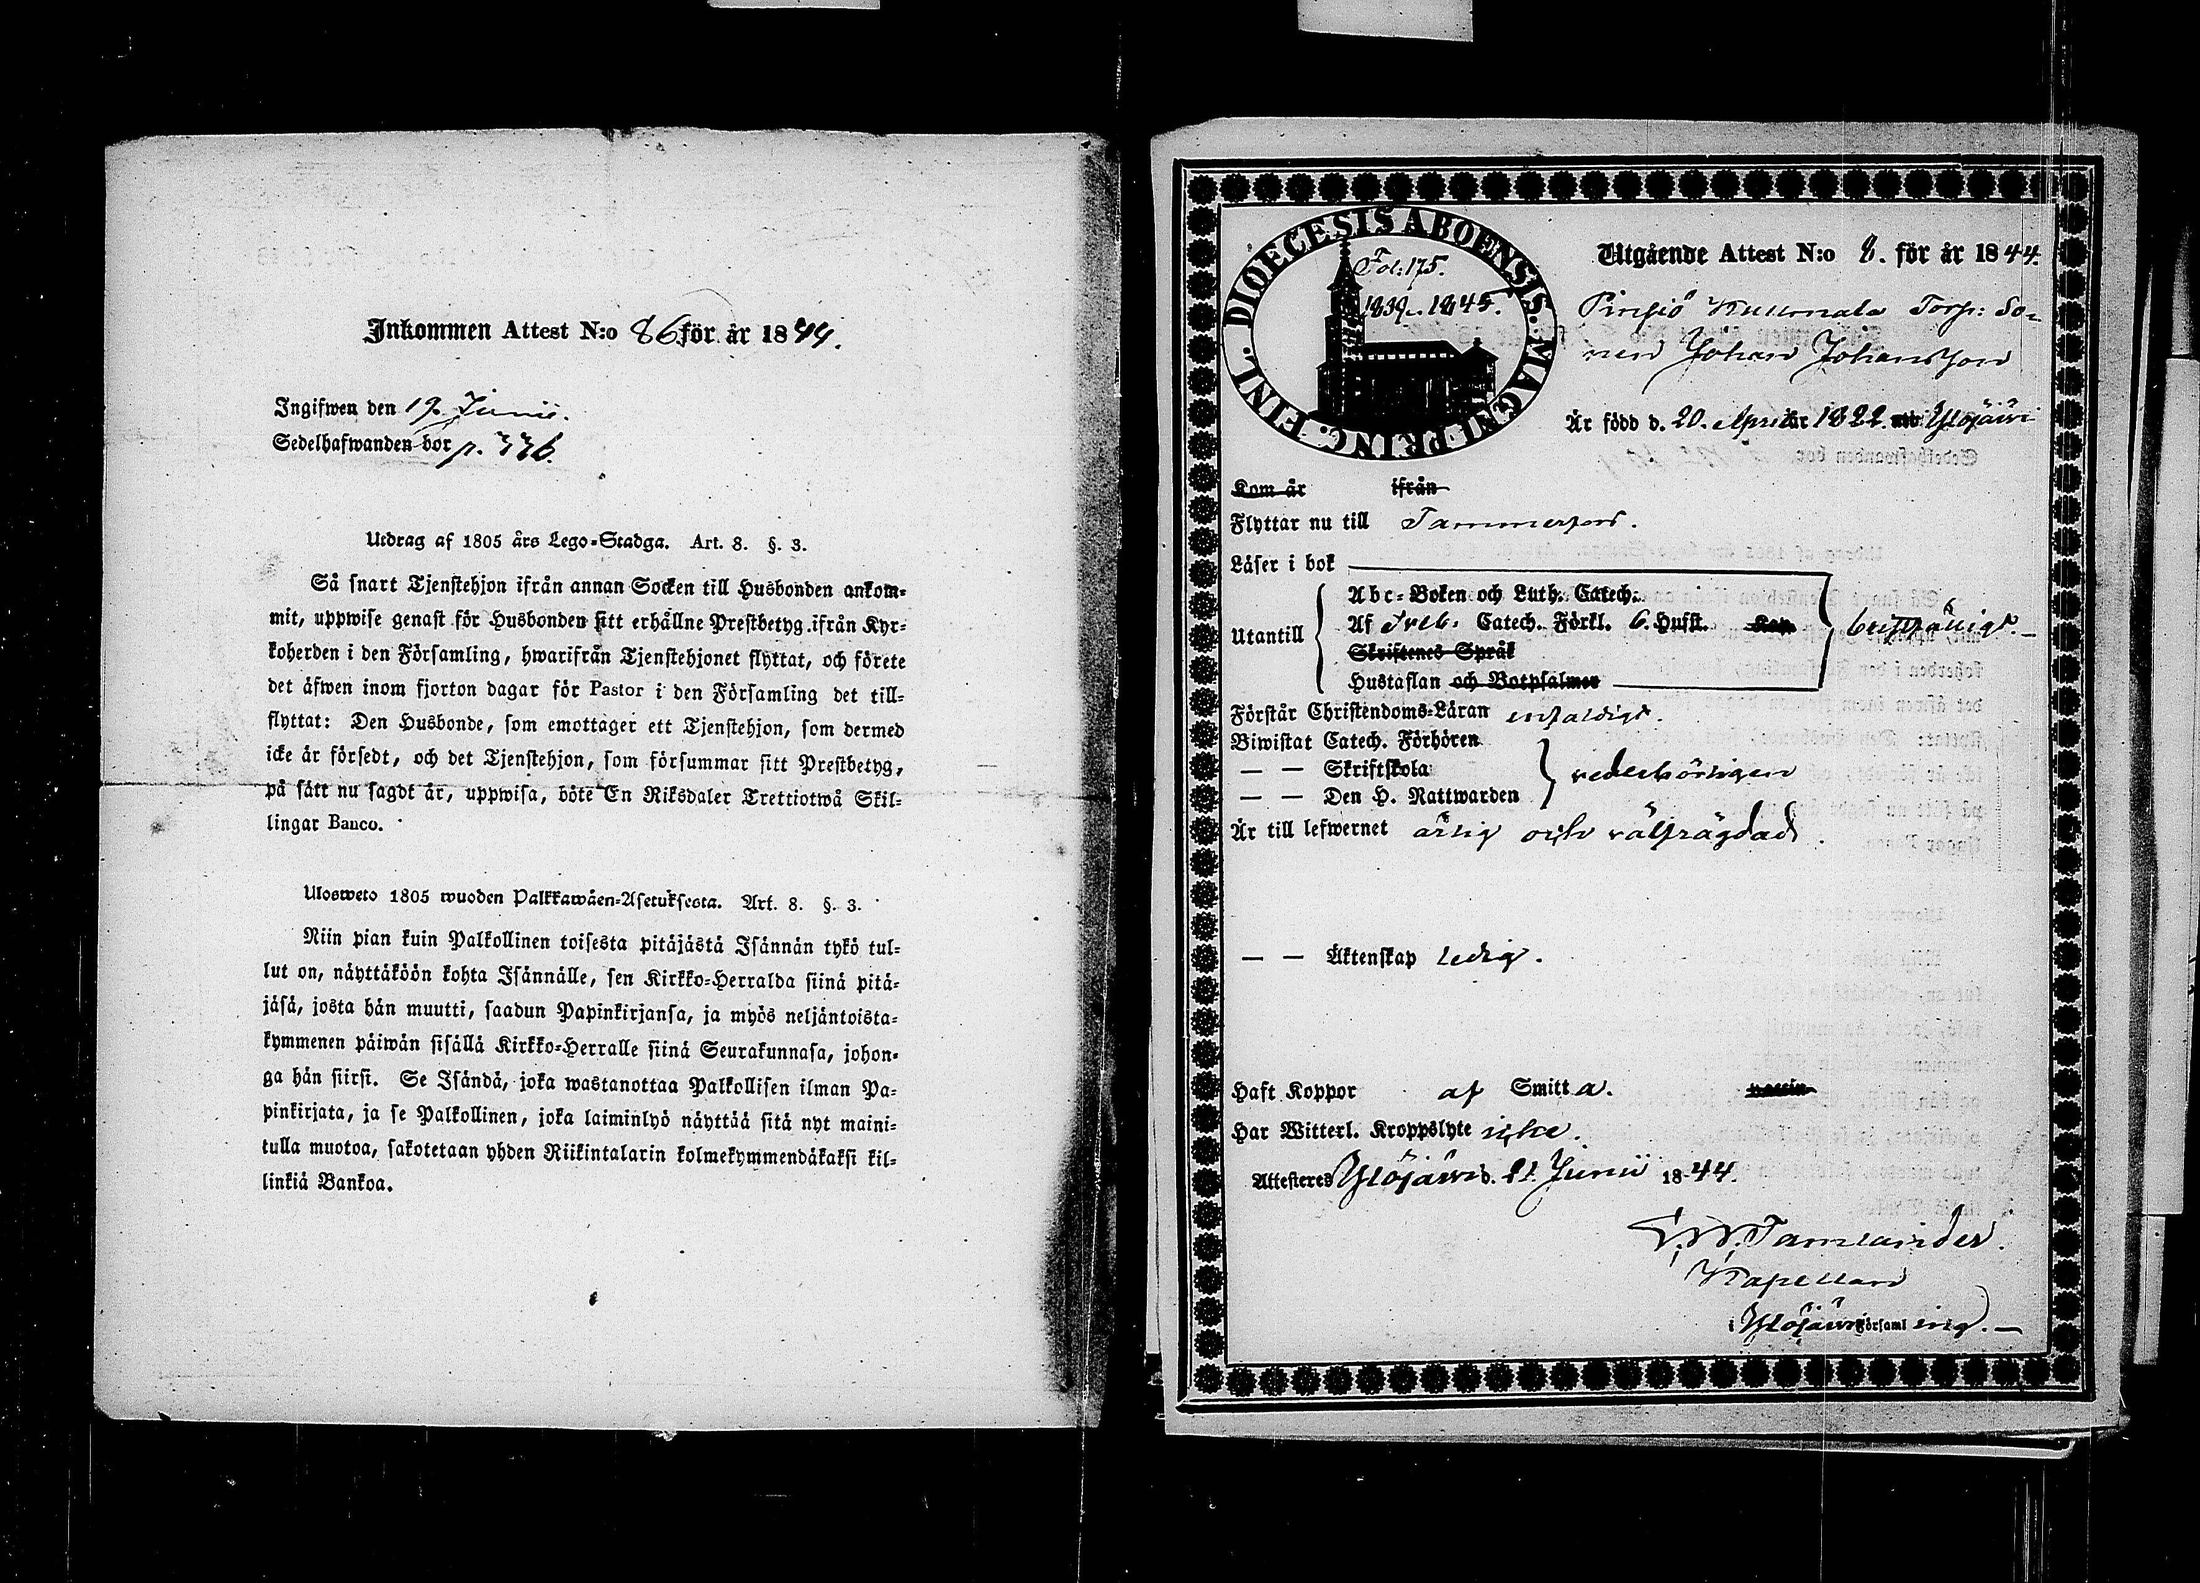 Inkommen Attest N:o 86 för år 1844.
Ingifwen den 19. Junii.
Sedelhafwanden bor p. 336.
Utdrag af 1805 års Lego-Stadga. Art. 8. §. 3.
Så snart Tjenstehjon ifrån annan Socken till Husbonden ankom-
mit, uppwise genast för Husbonden sitt erhållne Prestbetyg ifrån Kyr-
koherden i den Församling, hwarifrån Tjenstehjonet flyttat, och förete
det äfwen inom fjorton dagar för Pastor i den Församling det till-
flyttat: Den Husbonde, som emottager ett Tjenstehjon, som dermed
icke är försedt, och det Tjenstehjon, som försummar sitt Prestbetyg,
på sätt nu sagdt är, uppwisa, böte En Riksdaler Trettiotwå Skil-
lingar Banco.
Ulosweto 1805 wuoden Palkkawäen-Asetuksesta. Art. 8. §. 3.
Niin pian kuin Palkollinen toisesta pitäjästä Isännän tykö tul-
lut on, näyttäköön kohta Isännälle, sen Kirkko-Herralda siinä pitä-
jäsä, josta hän muutti, saadun Papinkirjansa, ja myös neljäntoista-
kymmenen päiwän sisällä Kirkko-Herralle siinä Seurakunnasa, johon-
ga hän siirsi. Se Isändä, joka wastanottaa Palkollisen ilman Pa-
pinkirjata, ja se Palkollinen, joka laiminlyö näyttää sitä nyt maini-
tulla muotoa, sakotetaan yhden Riikintalarin kolmekymmendäkaksi kil-
linkiä Bankoa.
DIOECESIS ABOENSIS. MAGNI PRINC. FINL.
Fol: 175.
1839-1845.
Utgående Attest N:o 8. för år 1844.
Pinsiö Torp: So-
nen Johan Johansson
Är född d. 20. April år 1822. uti Ylöjärvi
Kom år ifrån
Flyttar nu till Tammerfors.
Läser i bok
Utantill
Abc-Boken och Luth. Catech.
Af Sveb. Catech. Förkl. 6. Husst. Kap.
Skriftenes Språk
Hustaflan och Botpsalmer
Förstår Christendoms-Läran enfaldigt.
Biwistat Catech. Förhören
— — Skriftskola
— — Den H. Nattwarden
vederbörligen
Är till lefwernet ärlig och välfrägdad.
— — Äktenskap ledig.
Haft Koppor af Smitta. vaccin
Har Witterl. Kroppslyte icke.
Attesteres Ylöjärvi d. 21. Junii 1844.
Tamlander.
Kapellan
i Ylöjärvi Församling.—